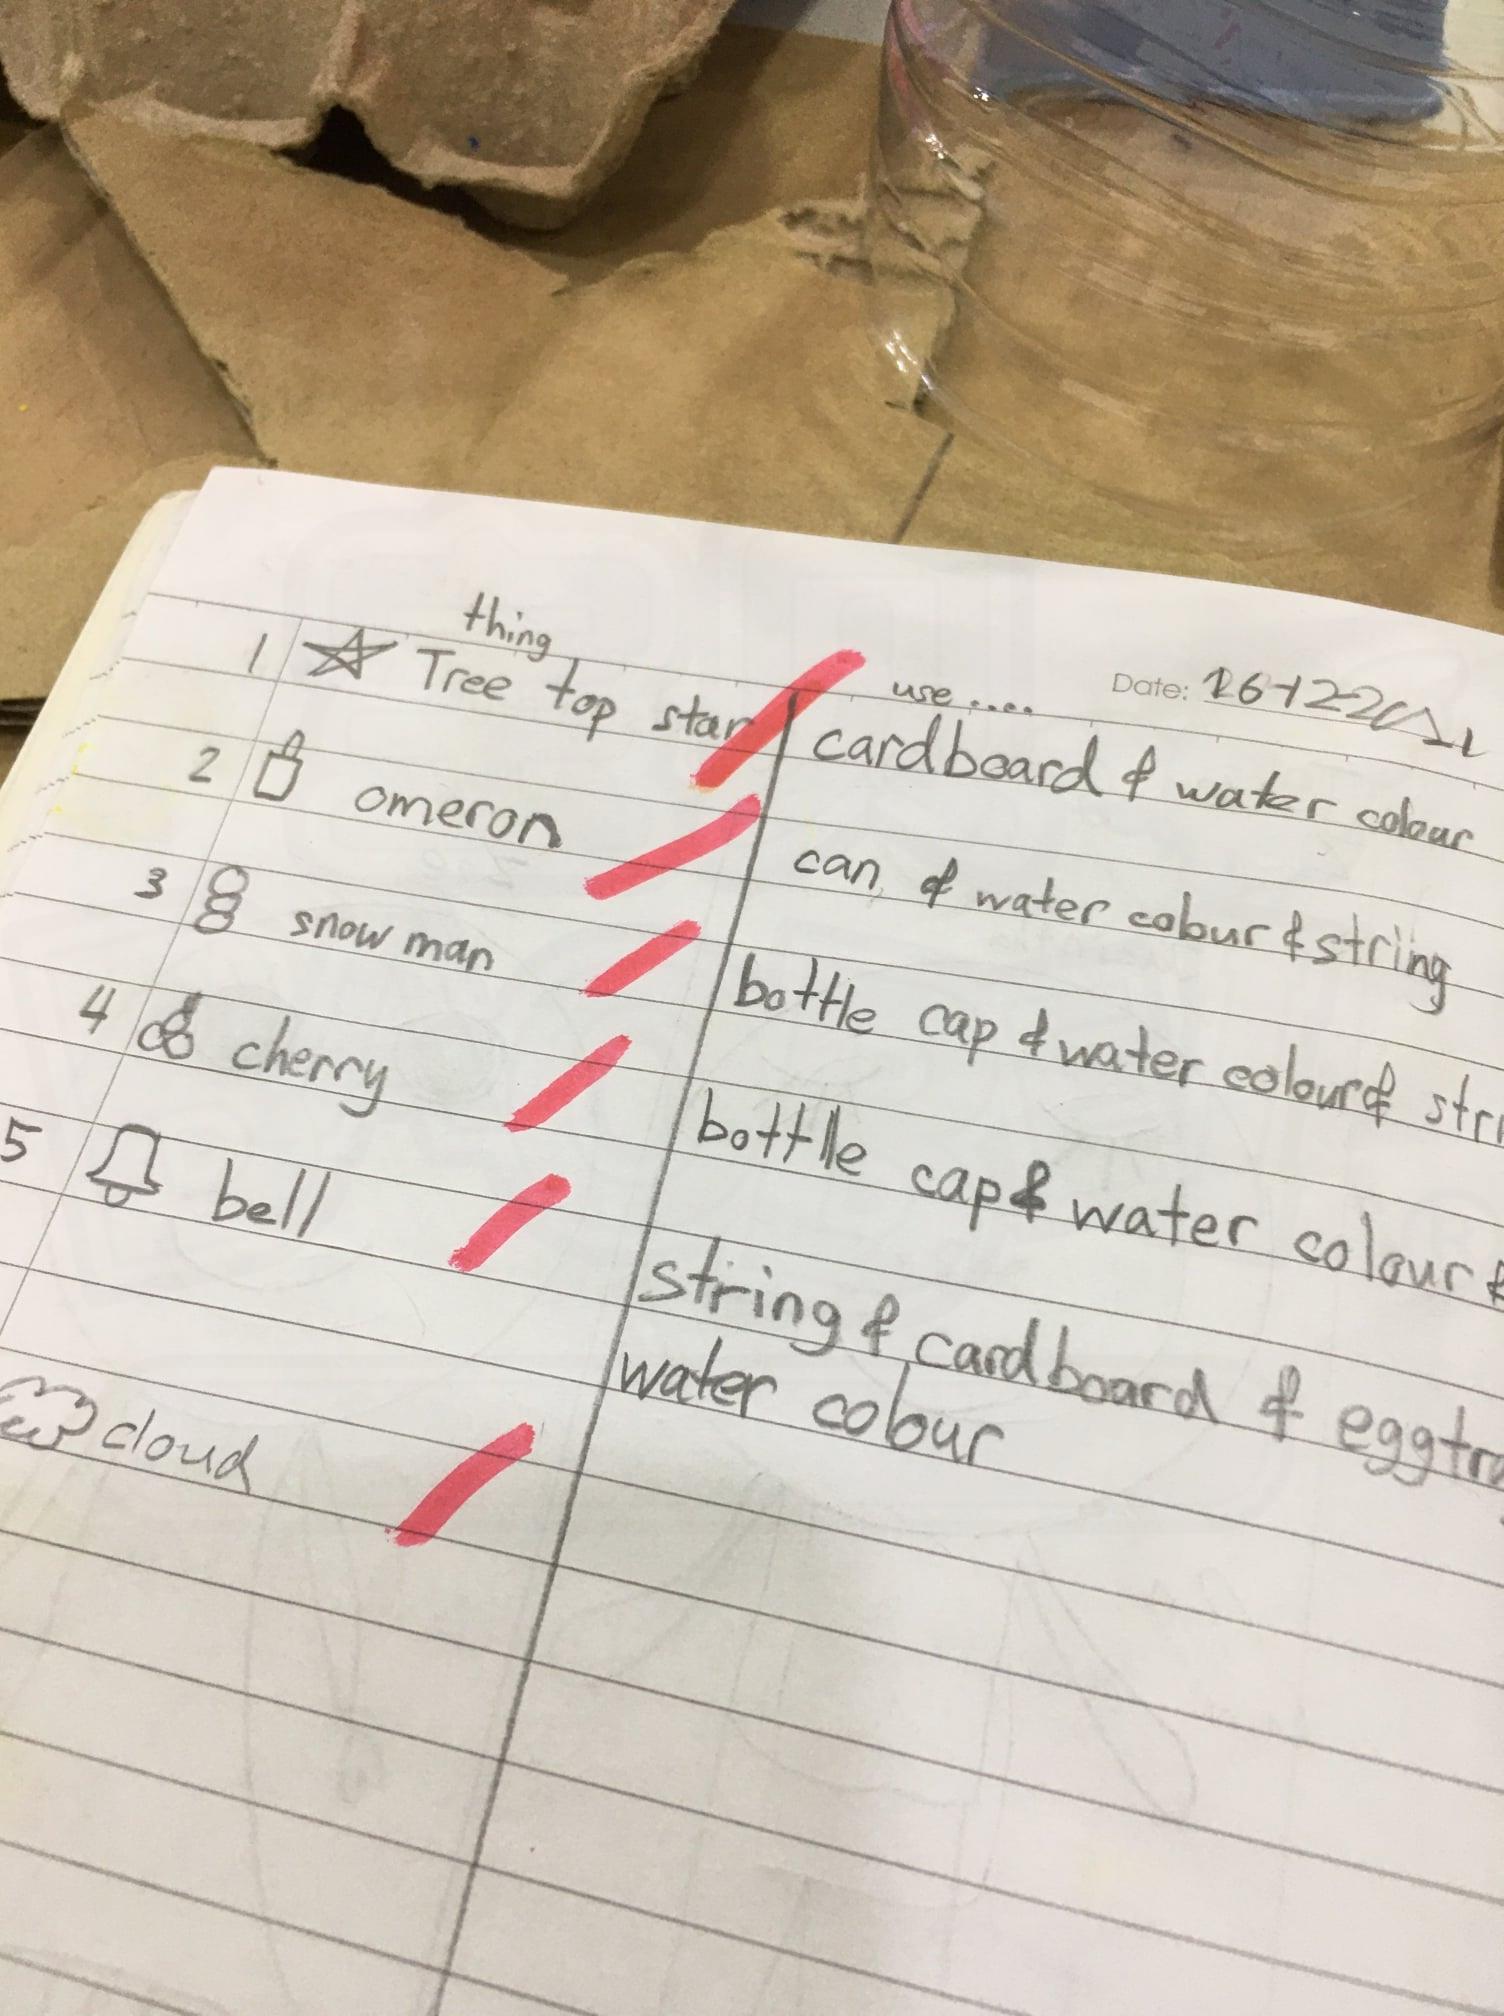 thing
use ....
Date:
1 Tree top star cardboard & water colour
2 omeron can & water colour & string
3 snow man bottle cap & water colour &
4 cherry bottle cap & water colour &
5 bell string & cardboard & 
water colour
cloud